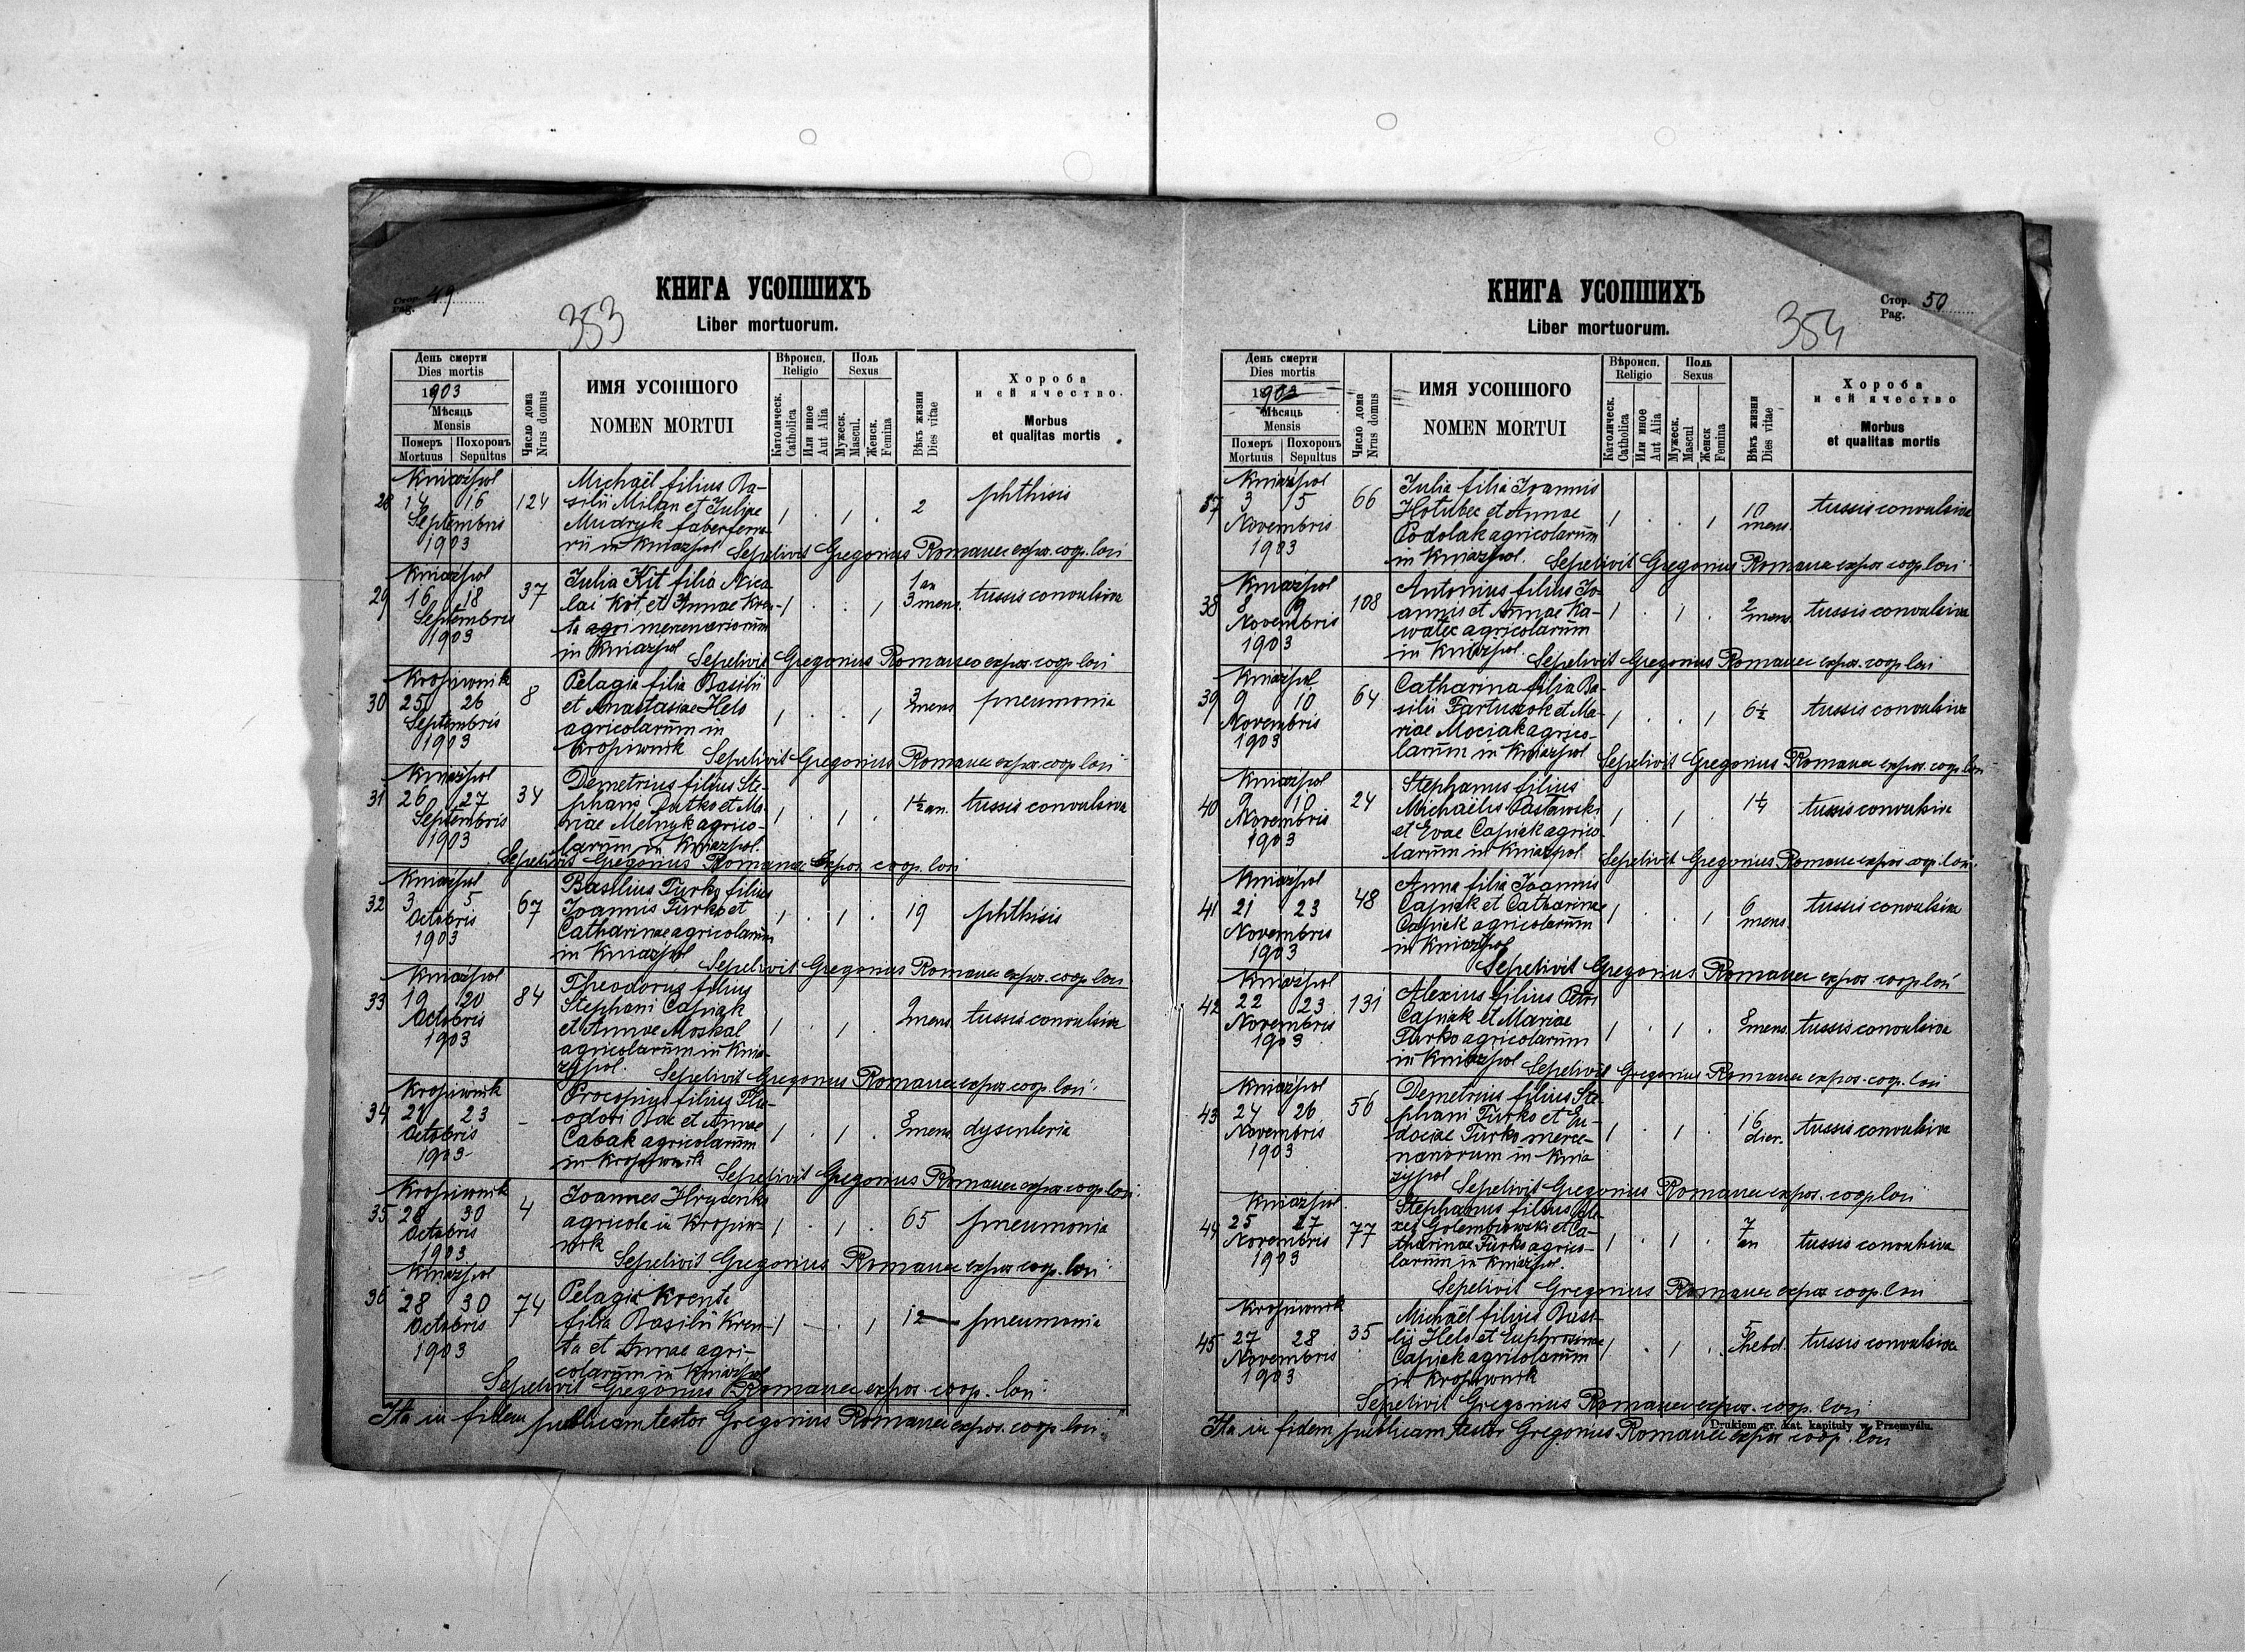 Стор. 49
Pag.
353
КНИГА УСОПШИХЪ
Liber mortuorum.
День смерти
Dies mortis
1903
Мѣсяць
Mensis
Померъ Похоронъ
Mortuus Sepultus
Число дома
Nrus domus
ИМЯ УСОПШОГО
NOMEN MORTUI
Вѣроисп.
Religio
Католическ.
Catholica
Или иное
Aut Alia
Поль
Sexus
Мужеск.
Mascul.
Женск.
Femina
Вѣкъ жизни
Dies vitae
Хороба
и ей ячество.
Morbus
et qualitas mortis
Kniażpol
28 14 16 124
Septembris
1903
Michaël filius Ba-
silii Milan et Juliae
Mudryk faberferra-
rii in Kniazpol
1 . 1 . 2 phthisis
Sepelivit Gregorius Romanec expos. coop. loci
Kniażpol
29 16 18 37
Septembris
1903
Julia Kit filia Nico-
lai Kit, et Annae Kren-
ta agri mercenariorum
in Kniażpol
1 . . 1 1 an 3 mens. tussis convulsiva
Sepelivit Gregorius Romanec expos. coop loci
Kropiwnik
30 25 26 8
Septembris
1903
Pelagia filia Basilii
et Anastasiae Hels
agricolarum in
Kropiwnik
1 . . 1 3 mens pneumonia
Sepelivit Gregorius Romanec expos. coop loci
Kniażpol
31 26 27 34
Septembris
1903
Demetrius filius Ste-
phani Dutko et Ma-
riae Melnyk agrico-
larum in Kniażpol.
1 . 1 . 1½ an. tussis convulsiva
Sepelivit Gregorius Romanec Expos. coop. loci
Kniażpol
32 3 5 67
Octobris
1903
Basilius Turko filius
Joannis Turko et
Catharinae agricolarum
in Kniażpol
1 . 1 . 19 phthisis
Sepelivit Gregorius Romanec expos. coop loci
Kniażpol
33 19 20 84
Octobris
1903
Theodorus filius
Stephani Capiak
et Annae Moskal
agricolarum in Knia-
żypol.
1 . 1 . 9 mens. tussis convulsiva
Sepelivit Gregorius Romanec expos coop. loci
Kropiwnik
34 21 23 –
Octobris
1903
Procopius filius The-
odori Bae et Annae
Cabak agricolarum
in Kropiwnik
1 . 1 . 8 mens dysenteria
Sepelivit Gregorius Romanec expos coop loci
Kropiwnik
35 28 30 4
Octobris
1903
Joannes Hrycenko
agricola in Kropiw-
nik
1 . 1 . 65 pneumonia
Sepelivit Gregorius Romanec expos coop. loci
Kniażpol
36 28 30 74
Octobris
1903
Pelagia Krenta
filia Basilii Kren-
ta et Annae agri-
colarum in Kniażpol
1 – . 1 12 pneumonia
Sepelivit Gregorius Romanec expos. coop. loci
Ita in fidem publicam testor Gregorius Romanec expos. coop. loci
354
Стор. 50
Pag.
КНИГА УСОПШИХЪ
Liber mortuorum.
День смерти
Dies mortis
1903
Мѣсяць
Mensis
Померъ Похоронъ
Mortuus Sepultus
Число дома
Nrus domus
ИМЯ УСОПШОГО
NOMEN MORTUI
Вѣроисп.
Religio
Католическ.
Catholica
Или иное
Aut Alia
Поль
Sexus
Мужеск.
Mascul
Женск
Femina
Вѣкъ жизни
Dies vitae
Хороба
и ей ячество
Morbus
et qualitas mortis
Kniażpol
37 3 5 66
Novembris
1903
Julia filia Joannis
Hołubec et Annae
Podolak agricolarum
in Kniażpol.
1 . . 1 10 mens. tussis convulsiva
Sepelivit Gregorius Romanec expos coop loci
Kniażpol
38 8 9 108
Novembris
1903
Antonius filius Jo-
annis et Annae Ka-
walec agricolarum
in Kniażpol.
1 . 1 . 2 mens. tussis convulsiva
Sepelivit Gregorius Romanec expos. coop loci
Kniażpol
39 9 10 64
Novembris
1903
Catharina filia Ba-
silii Fartuszok et Ma-
riae Mociak agrico-
larum in Kniażpol
1 . . 1 6½ tussis convulsiva
Sepelivit Gregorius Romanec expos. coop loci
Kniażpol
40 9 10 24
Novembris
1903
Stephanus filius
Michaëlis Pasławski
et Evae Capiak agrico
larum in Kniażpol
1 . 1 . 1¼ tussis convulsiva
Sepelivit Gregorius Romanec expos coop. loci
Kniażpol
41 21 23 48
Novembris
1903
Anna filia Joannis
Capiak et Catharinae
Capiak agricolarum
in Kniażpol
1 . . 1 6 mens. tussis convulsiva
Sepelivit Gregorius Romanec expos coop loci
Kniażpol
42 22 23 131
Novembris
1903
Alexius filius Petri
Capiak et Mariae
Turko agricolarum
in Kniażpol
1 . 1 . 8 mens. tussis convulsiva
Sepelivit Gregorius Romanec expos. coop. loci
Kniażpol
43 24 26 56
Novembris
1903
Demetrius filius Ste
phani Turko et Eu-
dociae Turko merce-
nariorum in Knia
żypol
1 . 1 . 16 dier. tussis convulsiva
Sepelivit Gregorius Romanec expos. coop loci
Kniażpol.
44 25 27 77
Novembris
1903
Stephanus filius Ale-
xei Golembiowski et Ca-
tharinae Turko agrico-
larum in Kniażpol.
1 . 1 . 7 an tussis convulsiva
Sepelivit Gregorius Romanec expos coop. loci
Kropiwnik
45 27 28 35
Novembris
1903
Michaël filius Basi-
lii Hels et Euphrosinae
Capiak agricolarum
in Kropiwnik
1 . 1 . 5 hebd. tussis convulsiva
Sepelivit Gregorius Romanec expos. coop. loci
Drukiem gr. kat. kapituły w Przemyślu.
Ita in fidem publicam testor Gregorius Romanec expos coop. loci